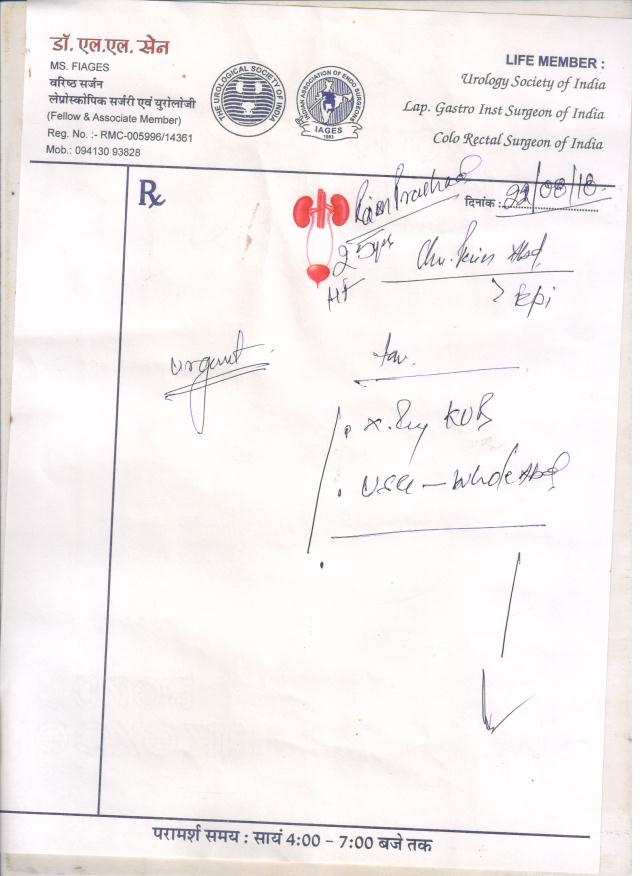 डॉ. एल.एल. सेन
MS. FIAGES
वरिष्ठ सर्जन
लेप्रोस्कोपिक सर्जरी एवं युरोलोजी
(Fellow & Associate Member)
Reg. No. :- RMC-005996/14361
Mob.: 094130 93828
THE UROLOGICAL SOCIETY OF INDIA
INDIAN ASSOCIATION OF ENDO SURGEONS
IAGES
1993
LIFE MEMBER :
Urology Society of India
Lap. Gastro Inst Surgeon of India
Colo Rectal Surgeon of India
Rx
दिनांक :
urgent
X.Ray KUB
USG - Whole Abd
परामर्श समय : सायं 4:00 - 7:00 बजे तक